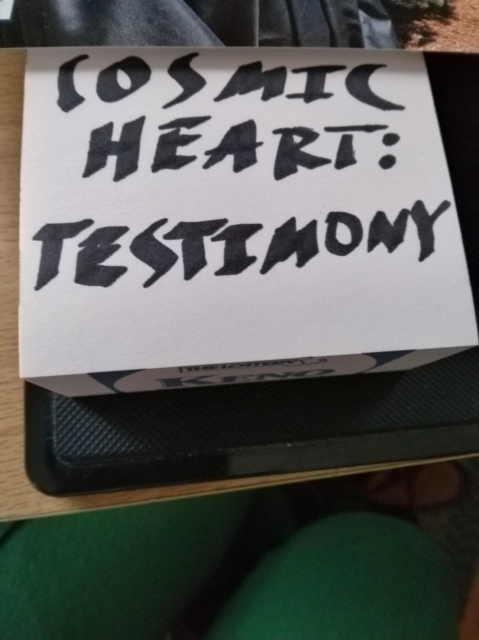 COSMIC
HEART:
TESTIMONY
KENO